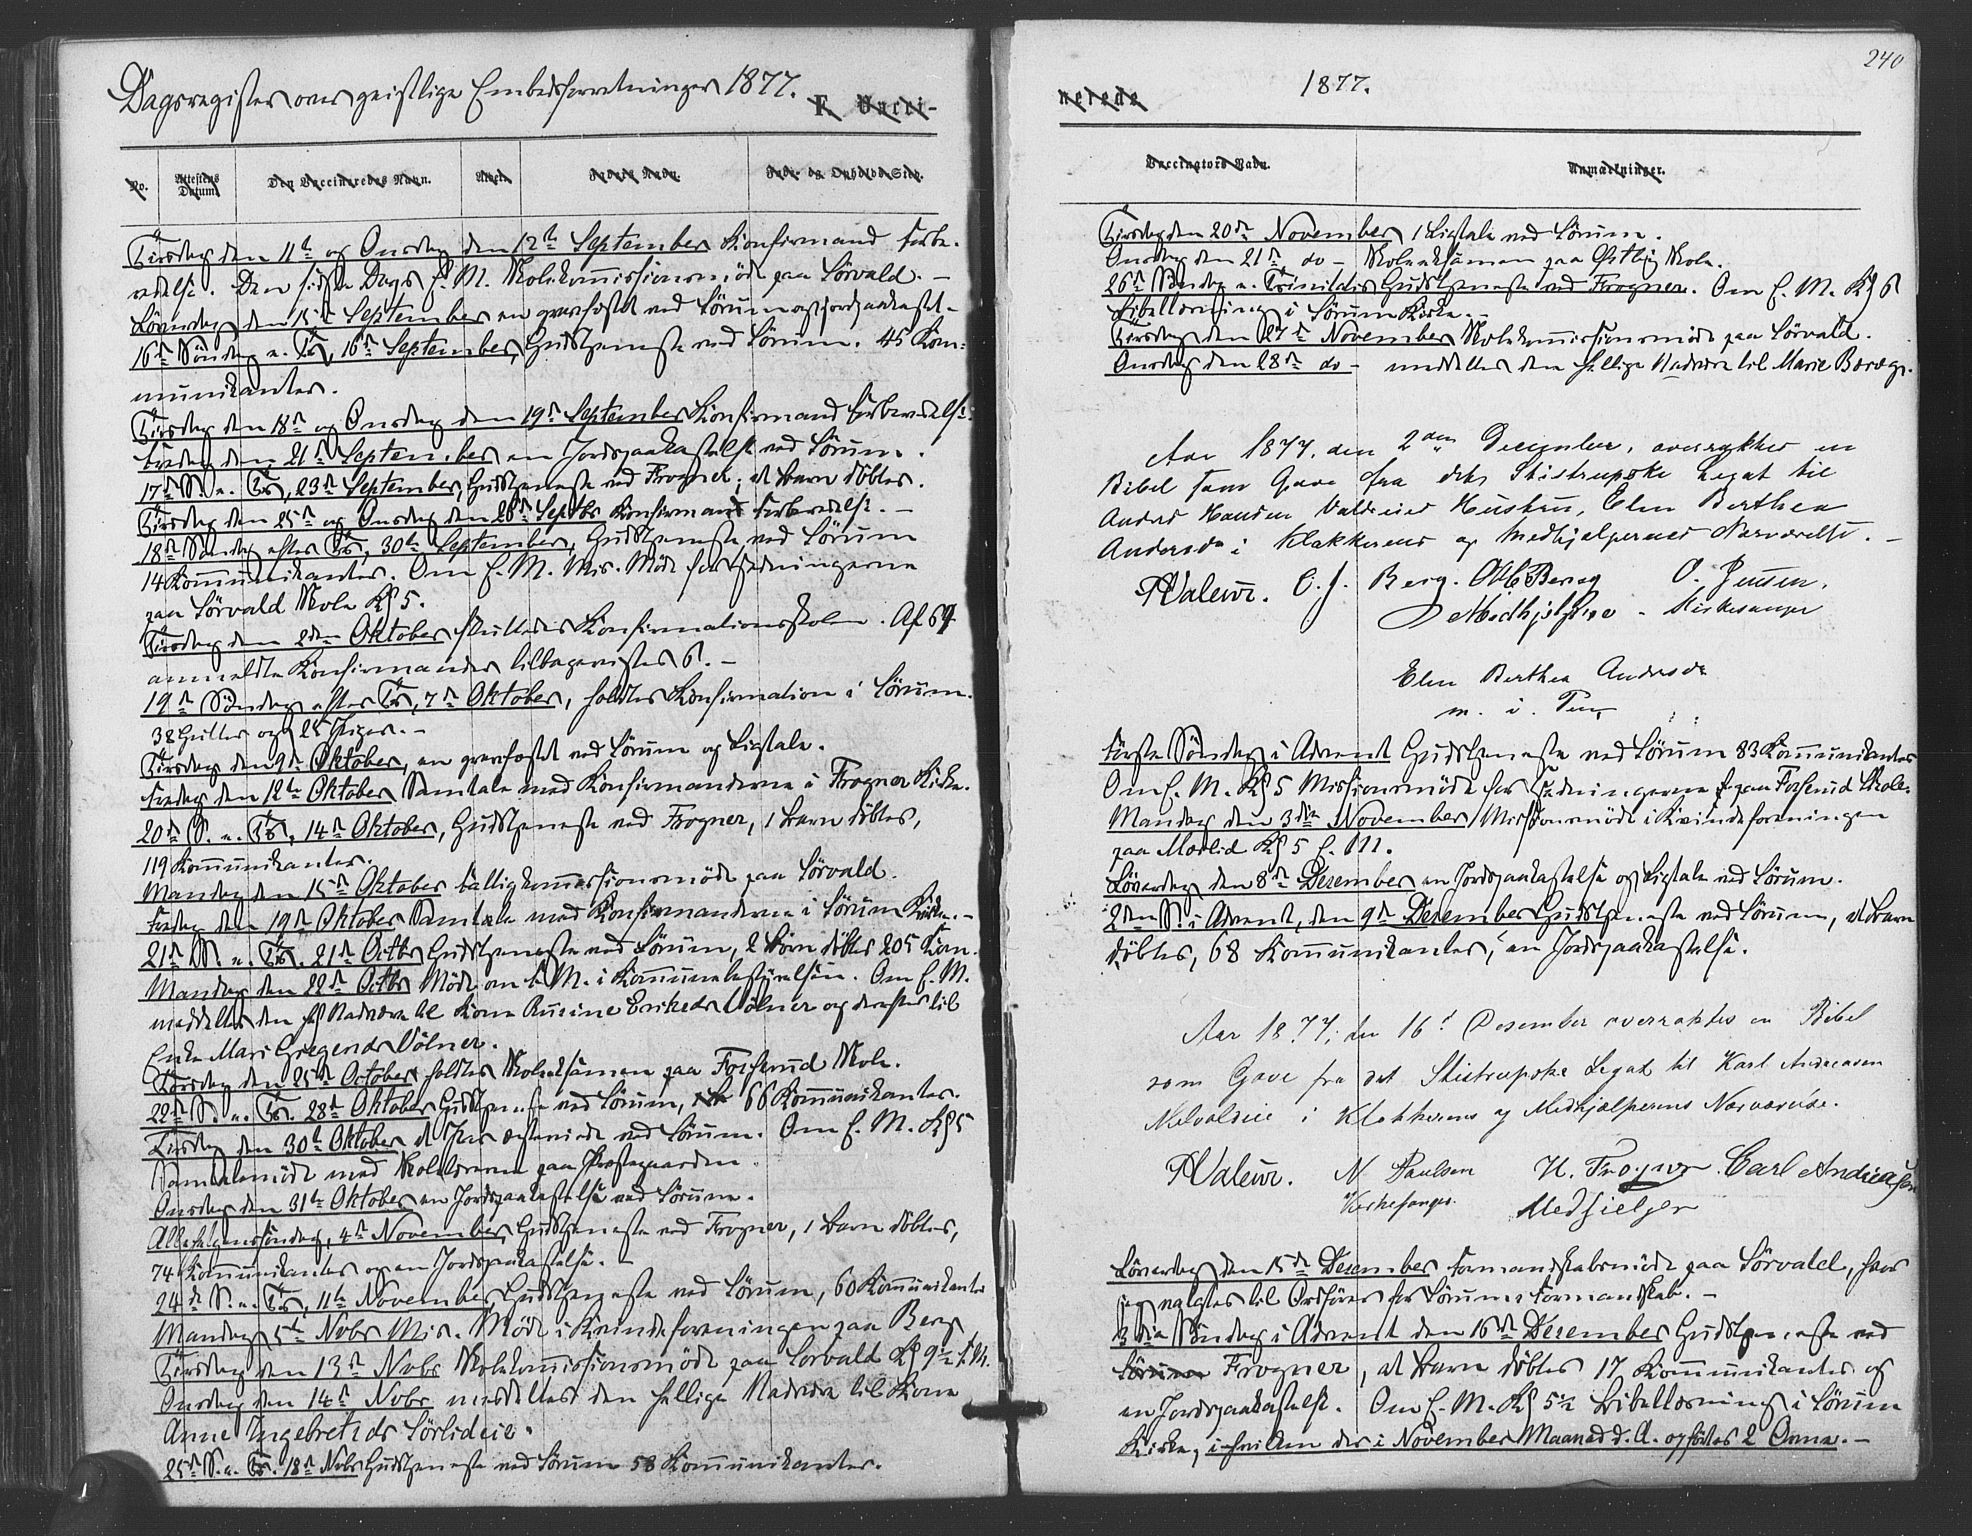 Dagsregister over geistlige Embedsforretninger 1877.
F. Vacci-
No.
Attestens Datum
Den Vaccineredes Navn.
Alder.
Faders Navn.
Føde- og Opholds-Sted.
Tirsdag den 11te og Onsdag den 12te September Konfirmand Forbe-
redelse. Den sidste Dags E. M. Skolekommissionsmøde paa Sörvald. –
Löverdag den 15de September en gravfæstet ved Sörum og Jordpaakastet. –
16de Söndag e. Tr., 16de September, Gudstjeneste ved Sörum. 45 Kom-
munikanter.
Tirsdag den 18de og Onsdag den 19de September Konfirmand Forberedelse.
Fredag den 21de September en Jordpaakastelse ved Sörum.
17de S. e. Tr., 23de September, Gudstjeneste ved Frogner, et Barn döbtes.
Tirsdag den 25de og Onsdag den 26de Septbr Konfirmand Forberedelse. –
18de Söndag efter Tr., 30te September, Gudstjeneste ved Sörum
14 Kommunikanter. Om E. M. Mis. Möde for Hedningerne
paa Sörvald Skole Kl 5.
Tirsdag den 2den Oktober sluttedes Konfirmationsskolen. Af 69
anmeldte Konfirmander tilbagevistes 6. –
19de Söndag efter Tr., 7de Oktober, holdtes Konfirmation i Sörum.
38 Gutter og 25 Piger. –
Tirsdag den 9de Oktober, en gravfæstet ved Sörum og Ligtale.
Fredag den 12te Oktober Samtale med Konfirmanderne i Frogner Kirke.
20de S. e. Tr., 14de Oktober, Gudstjeneste ved Frogner, 1 Barn döbtes,
119 Kommunikanter.
Mandag den 15de Oktober Fattigkommissionsmöde paa Sörvald.
Fredag den 19de Oktober Samtale med Konfirmanderne i Sörum Kirke. –
21de S. e. Tr. 21de Octbr Gudstjeneste ved Sörum, 2 Börn döbtes 205 Kom.
Mandag den 22de Octbr Möde om F. M. i Kommunebestyrelsen. Om E. M.
meddeltes den hel. Nadvere til Kone Eriksdr Völner og derefter til
Enke Mari Gregersdr Völner.
Torsdag den 25de October holdtes Skoleeksamen paa Forserud Skole.
22de S. e. Tr. 28de Oktober Gudstjeneste ved Sörum, 66 Kommunikanter.
Tirsdag den 30te Oktober et Par ægteviede ved Sörum. Om E. M. Kl 5
Samtalemöde med Skolelærerne paa Præstegaarden.
Onsdag den 31te Oktober en Jordpaakastelse ved Sörum.
Allehelgenssöndag, 4de November, Gudstjeneste ved Frogner, 1 Barn döbtes,
74 Kommunikanter og en Jordpaakastelse. –
24de S. e. Tr., 11te November, Gudstjeneste ved Sörum, 60 Kommunikanter
Mandag 5te Novbr Mis. Möde i Kvindeforeningen paa Berg
Tirsdag den 13de Novbr Skolekommissionsmöde paa Sorvald Kl 9½ F. M.
Onsdag den 14de Novbr meddeltes den hellige Nadvere til Kone
Anne Ingebretsdr Sörlideie.
25de S. e. Tr. 18de Novbr Gudstjeneste ved Sörum 58 Kommunikanter.
240
1877.
nerede
Vaccinators Navn.
Anmærkninger.
Tirsdag den 20de November 1 Ligtale ved Sörum.
Onsdag den 21de do – Skoleeksamen paa Skole.
26de Söndag e. Trinitatis Gudstjeneste ved Frogner. Om E. M. Kl 6
Bibellæsning i Sörum Kirke. –
Tirsdag den 27de November Skolekommissionsmöde paa Sörvald.
Onsdag den 28de do – meddeltes den hellige Nadvere til Marie
Aar 1877, den 2den December, overraktes en
Bibel som Gave fra det Stistrupske Legat til
Hansen Hustru, Elen Berthea
Andersdr i Klokkerens og Medhjælpernes Nærværelse. –
HValeur. C. J. Berg. O. Jensen.
Medhjælpere – Kirkesanger
Elen Berthea Andersdr
m. i. Pen
Förste Söndag i Advent Gudstjeneste ved Sörum 83 Kommunikanter
Om E. M. Kl 5 Missionsmöde for Hedningerne paa Forserud Skole.
Mandag den 3die November Missionsmöde i Kvindeforeningen
paa Mælid Kl 5 E. M.
Löverdag den 8de Desember en Jordpaakastelse og Ligtale ved Sörum.
2den S. i Advent, den 9de Desember Gudstjeneste ved Sörum, et Barn
döbtes, 68 Kommunikanter, en Jordpaakastelse.
Aar 1877, den 16de Desember overraktes en Bibel
som Gave fra det Stistrupske Legat til Karl Andreasen
i Klokkerens og Medhjælperens Nærværelse.
HValeur. N Paulsen H. Frogner Carl Andreasen
Kirkesanger Medhielper
Löverdag den 15de Desember Formandskabsmöde paa Sörvald, hvor
jeg valgtes til Ordförer for Sörums Formandskab. –
3die Söndag i Advent den 16de Desember Gudstjeneste ved
Sörum Frogner, et Barn döbtes 17 Kommunikanter og
en Jordpaakastelse. Om E. M. Kl 5½ Bibellæsning i Sörum
Kirke, i hvilken der i November Maaned d. A. opförtes 2 Ovne. –